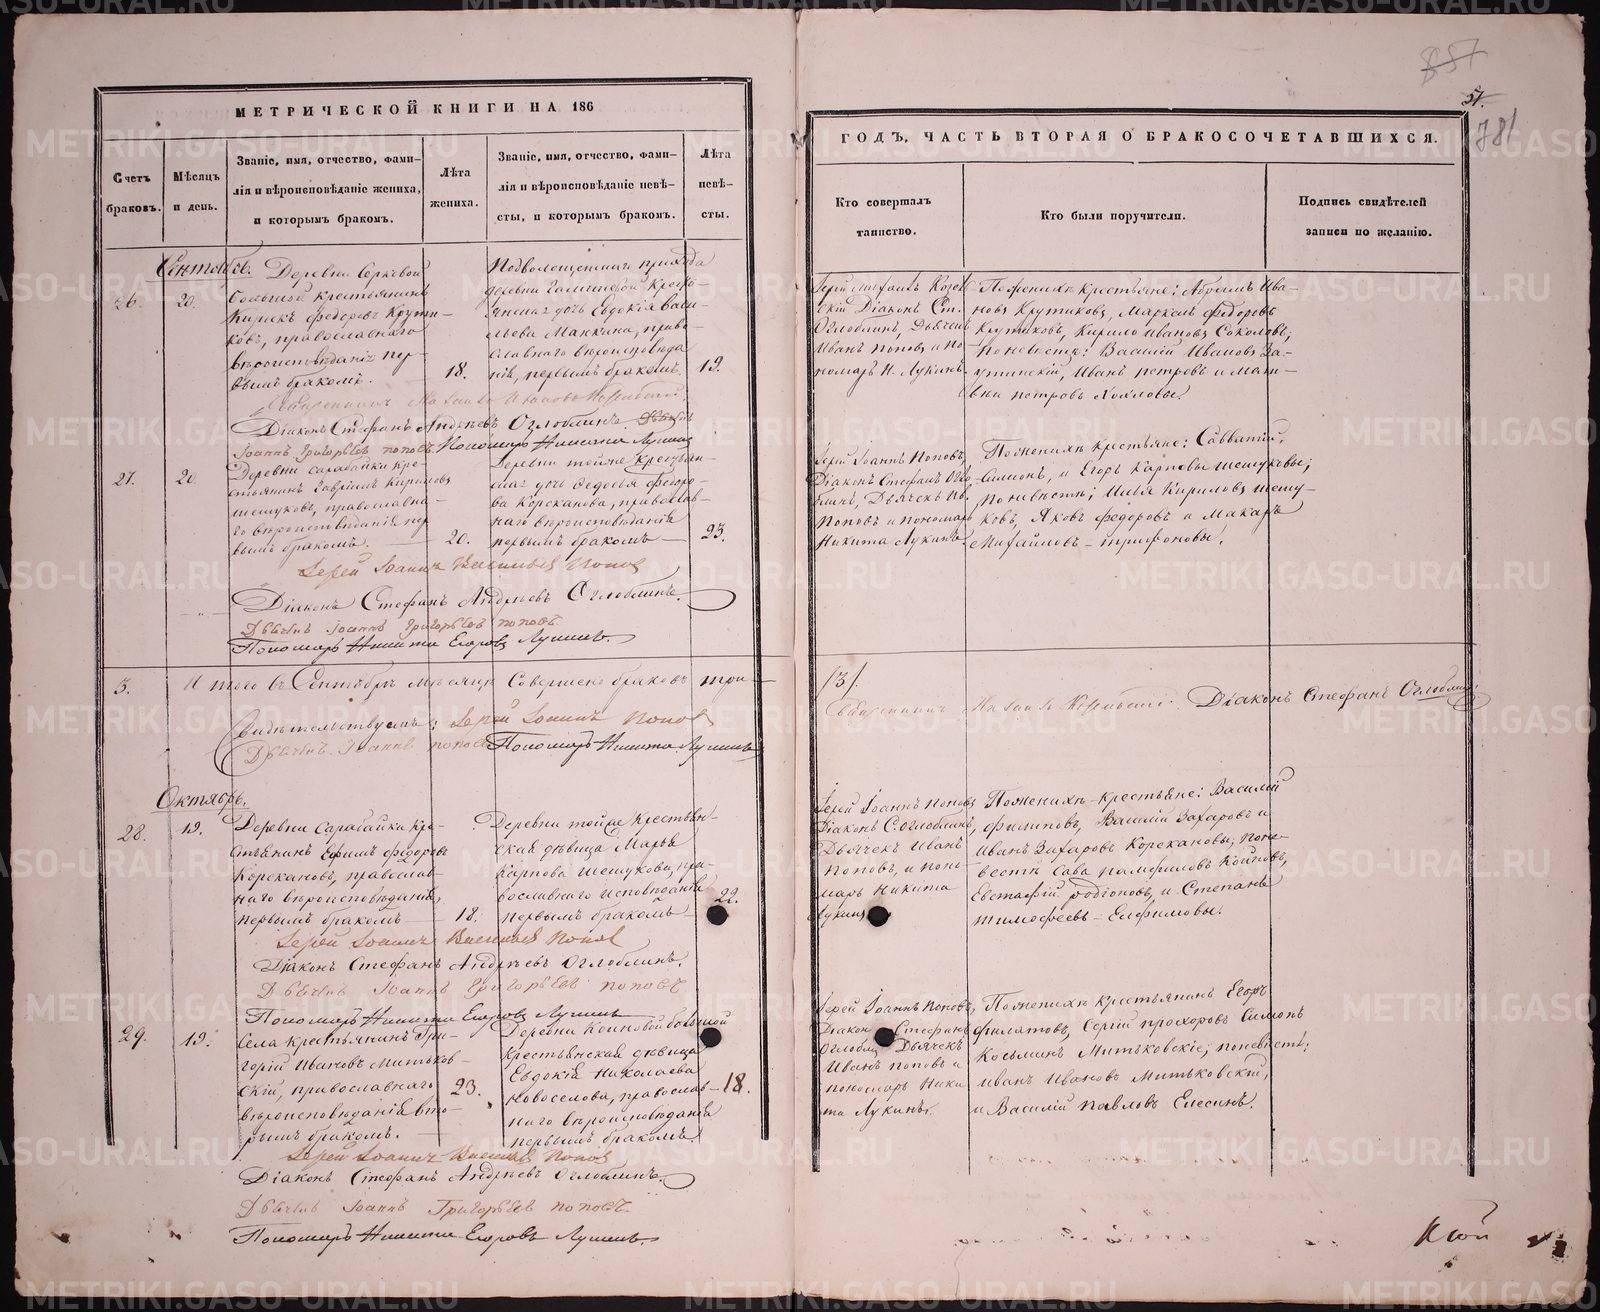 857
57.
781
МЕТРИЧЕСКОЙ КНИГИ НА 186
Счетъ браковъ.
Мѣсяцъ и день.
Званіе, имя, отчество, фами-
лія и вѣроисповѣданіе жениха,
и которымъ бракомъ.
Лѣта жениха.
Званіе, имя, отчество, фами-
лія и вѣроисповѣданіе невѣ-
сты, и которымъ бракомъ.
Лѣта невѣ-
сты.
Сентябрь.
26.
20.
Деревни Серкевой
большой крестьянинъ
Федоровъ Крути-
ковъ, православнаго
вѣроисповѣданія пер-
вымъ бракомъ.
18.
прихода
деревни Галишевой Кресть-
янская дочь Евдокія Васи-
льева Манкина, право-
славнаго вѣроисповѣда
нія, первымъ бракомъ.
19.
Діаконъ Стефанъ Андреевъ Оглоблинъ. Дьячекъ
Іоаннъ Григорьевъ Поповъ. Пономарь Никита Лукинъ
27.
20
Деревни Сарабайки кре-
стьянинъ Гавріилъ Кириловъ
Шешуковъ, православна-
го вѣроисповѣданія пер
вымъ бракомъ.
20.
Деревни тойже Крестьян-
ская дочь Федосья Федоро-
ва Корсканова, православ-
наго вѣроисповѣданія
первымъ бракомъ
23.
Іерей Іоаннъ Васильевъ Поповъ
Діаконъ Стефанъ Андреевъ Оглоблинъ.
Дьячекъ Іоаннъ Григорьевъ Поповъ.
Пономарь Никита Егоровъ Лукинъ.
3.
Итого въ Сентябрѣ мѣсяцѣ совершено браковъ три
Свидѣтельствуемъ: Іерей Іоаннъ Поповъ
Дьячекъ Іоаннъ Поповъ Пономарь Никита Лукинъ
Октябрь.
28.
19.
Деревни Сарабайки Кре-
стьянинъ Ефимъ Федоровъ
Корскановъ, православ-
наго вѣроисповѣданія,
первымъ бракомъ
18.
Деревни тойже Крестьян-
ская дѣвица Марья
Карпова Шешукова, пра-
вославнаго исповѣданія
первымъ бракомъ
22.
Іерей Іоаннъ Васильевъ Поповъ
Діаконъ Стефанъ Андреевъ Оглоблинъ.
Дьячекъ Іоаннъ Григорьевъ Поповъ
Пономарь Никита Егоровъ Лукинъ
29.
19.
Села крестьянинъ Гри-
горій Ивановъ Митьков-
скій, православнаго
вѣроисповѣданія вто-
рымъ бракомъ.
23.
Деревни Коинковой большой
Крестьянская дѣвица
Евдокія Николаева
Новоселова, православ-
наго вѣроисповѣданія
первымъ бракомъ
18.
Іерей Іоаннъ Васильевъ Поповъ
Діаконъ Стефанъ Андреевъ Оглоблинъ.
Дьячекъ Іоаннъ Григорьевъ Поповъ.
Пономарь Никита Егоровъ Лукинъ.
ГОДЪ, ЧАСТЬ ВТОРАЯ О БРАКОСОЧЕТАВШИХСЯ.
Кто совершалъ
таинство.
Кто были поручители.
Подпись свидѣтелей
записи по желанію.
Діаконъ Ст.
Оглоблинъ, Дьячекъ
Иванъ Поповъ и По
номарь Н. Лукинъ
По женихѣ крестьяне: Абрамъ Ива-
новъ Крутиковъ, Маркелъ Федоровъ
Крутиковъ, Кирило Ивановъ Соколовъ;
по невѣстѣ: Василій Ивановъ За-
Иванъ Петровъ и Мат-
вѣй Петровъ Хохловы.
Іерей Іоаннъ Поповъ,
Діаконъ Стефанъ Огло
блинъ, Дьячекъ Ив.
Поповъ и пономарь
Никита Лукинъ.
По женихѣ крестьяне: Савватій,
Симонъ, и Егоръ Карповы Шешуковы;
по невѣстѣ; Илья Кириловъ Шешу-
ковъ, Яковъ Федоровъ и Макаръ
Михайловъ Трифоновы.
/3/.
Діаконъ Стефанъ Оглоблинъ
Іерей Іоаннъ Поповъ
Діаконъ С. Оглоблинъ,
Дьячекъ Иванъ
Поповъ, и поно
марь Никита
Лукинъ
По женихѣ крестьяне: Василій
Филиповъ, Василій Захаровъ и
Иванъ Захаровъ Корскановы; по не-
вестѣ Сава Памфиловъ Койновъ,
Евстафій Родіоновъ, и Степанъ
Тимофеевъ Елфимовы.
Іерей Іоаннъ Поповъ,
Діаконъ Стефанъ
Оглобл Дьячекъ
Иванъ Поповъ и
пономарь Ники
та Лукинъ.
По женихѣ крестьянинъ Егоръ
Филатовъ, Сергій Прохоровъ Симонъ
Косьминъ Митьковскіе; по невѣстѣ:
Иванъ Ивановъ Митьковскій,
и Василій Павловъ Елесинъ.
METRIKI.GASO-URAL.RU